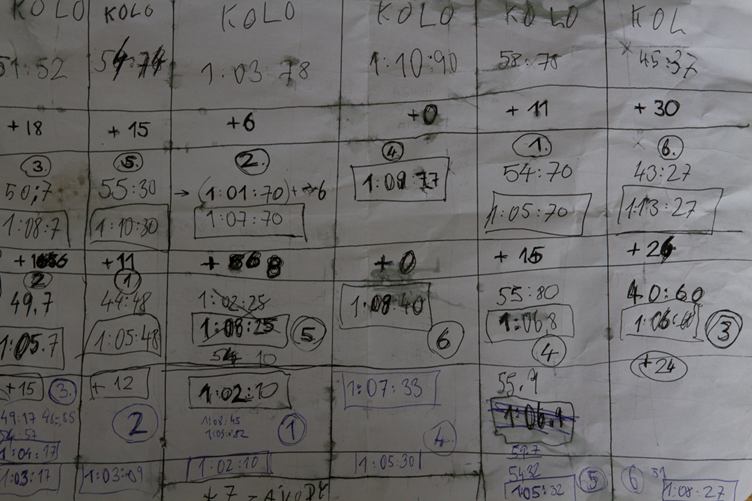 KOLO KOLO KOLO KOLO KOLO KOL
51:52 1:03:78 1:10:90 58:78 45:37
+18 +15 +6 +0 +11 +30
3 5. 2. 4 1. 6.
50,7 55:30 → (1:01:70)+ 6 54:70 43:27
1:08:7 1:10:30 1:07:70 1:05:70 1:13:27
+11 +0 +15 +26
2 1
49,7 44:48 1:02:25 1:08:40 55:80 40:60
1:05.7 1:05:48 1:08:25 5 6 1:06,8 4 3
10 +24
+15 3. +12 1:02:10 1:07:33 55,9
49:17 2 1 4. 1:06,9
1:04:17
1:03:17 1:03:09 1:02:10 1:05:30 54:32 5 6
1:05:32 1:08:27
+7